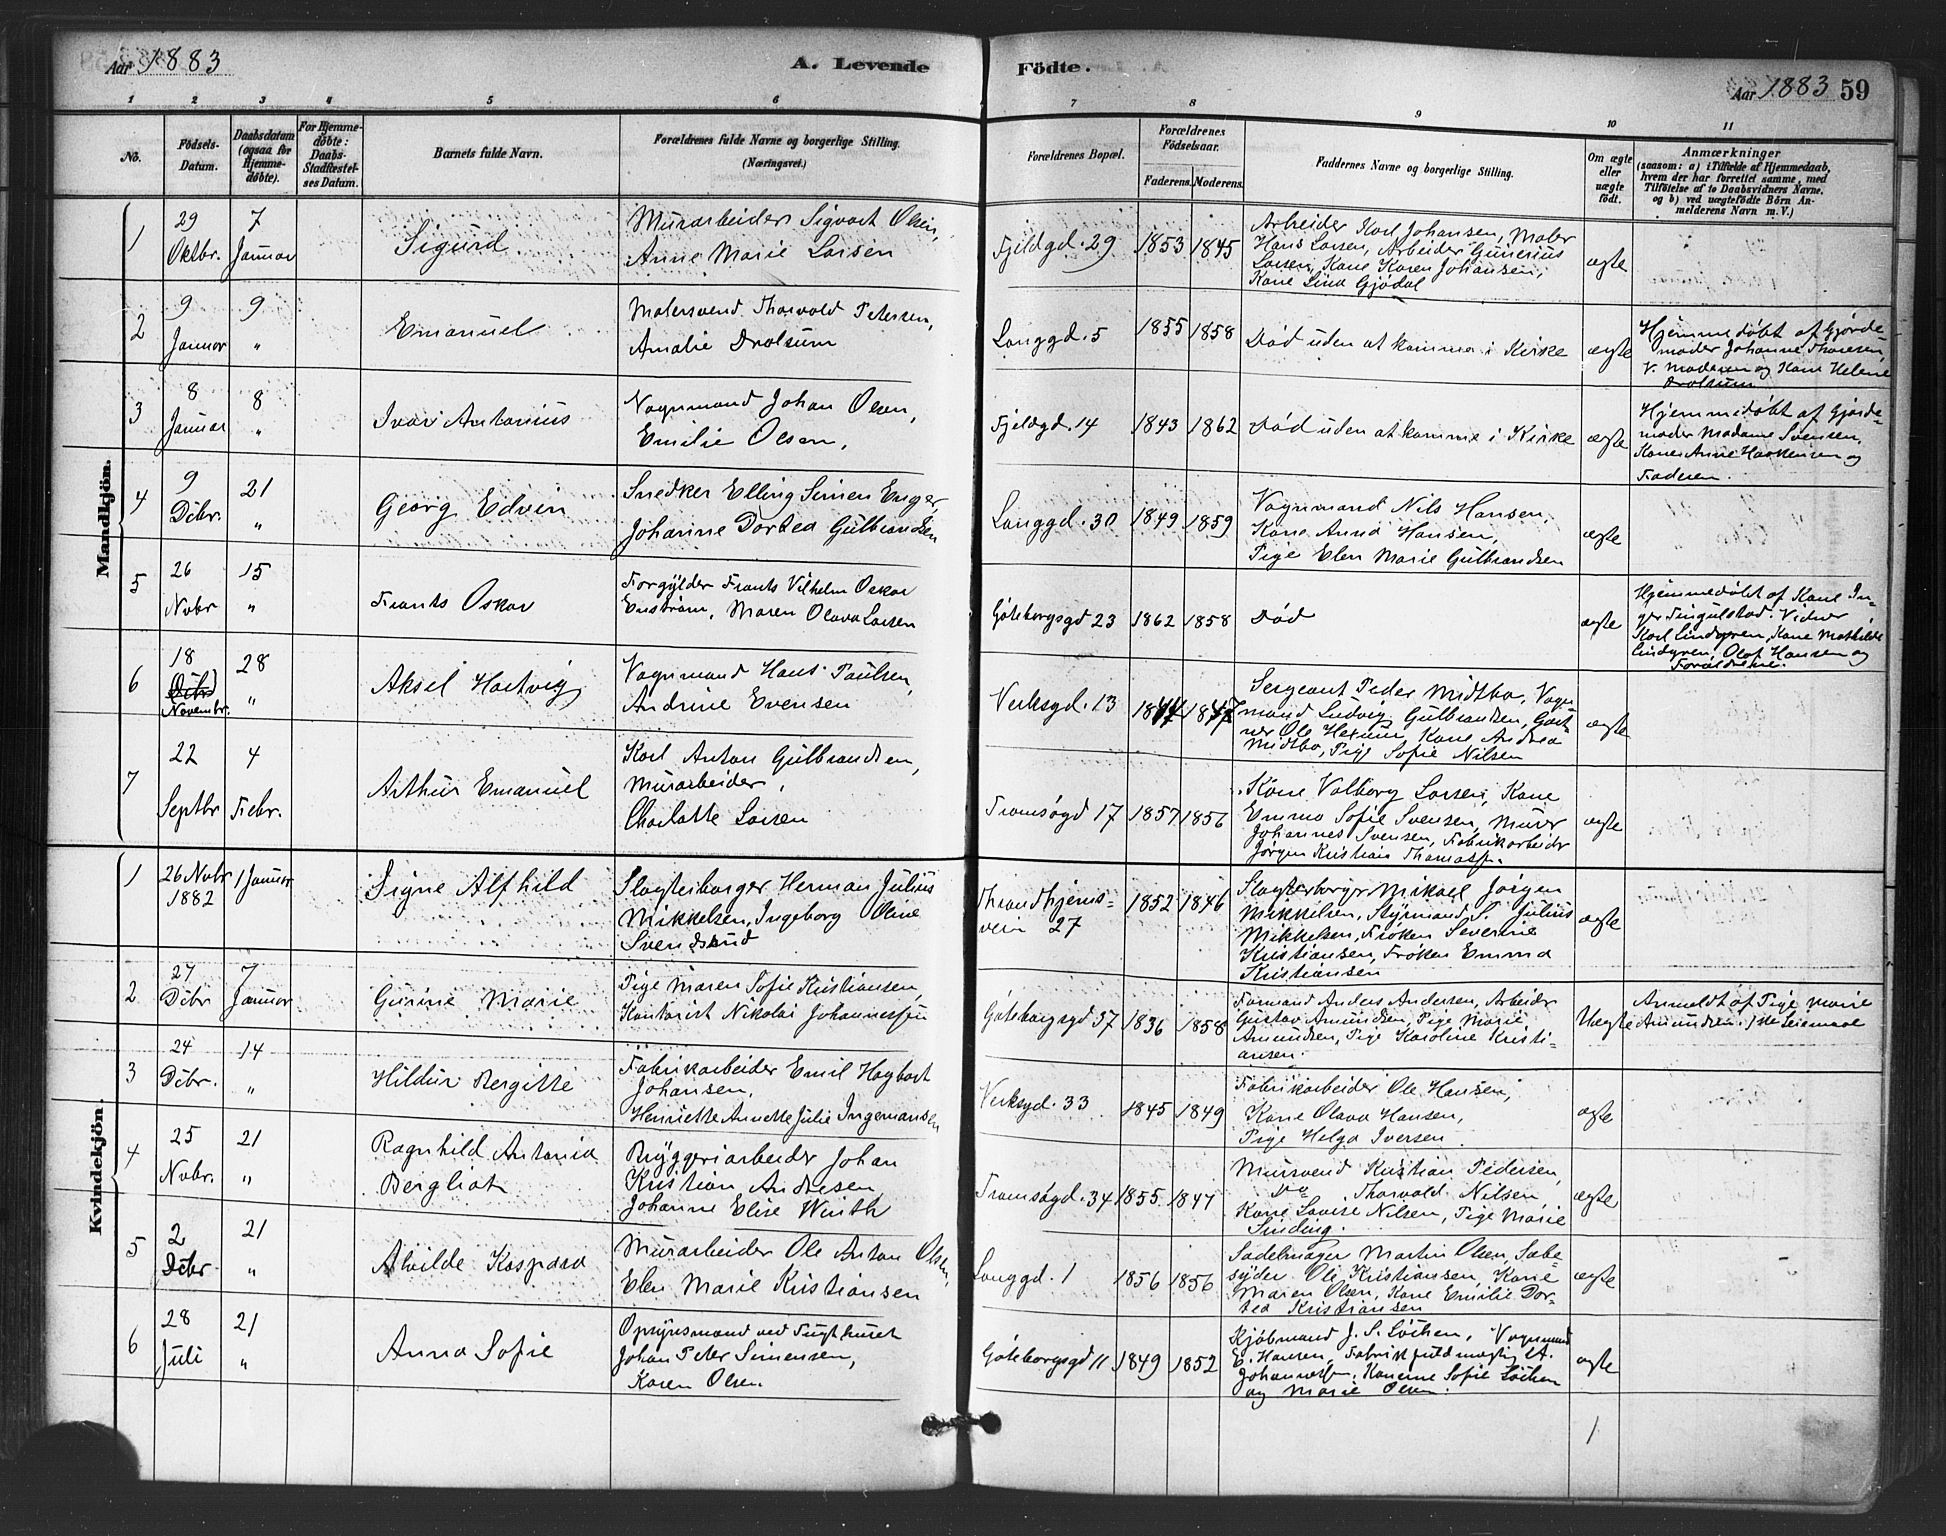 Aar 1883
A. Levende
Födte.
Aar 1883 59
1 2 3 4 5 6 7 8 9 10 11
No.
Födsels-Datum.
Daabsdatum (ogsaa for Hjemmedöbte).
For Hjemmedøbte: Daabs-Stadfæstelses Datum.
Barnets fulde Navn.
Forældrenes fulde Navne og borgerlige Stilling.
(Næringsvei.)
Forældrenes Bopæl.
Forældrenes Födselsaar.
Faderens. Moderens.
Faddernes Navne og borgerlige Stilling.
Om ægte eller uægte født.
Anmærkninger
(saasom: a) i Tilfælde af Hjemmedaab, hvem der har forrettet samme, med Tilföielse af to Daabsvidners Navne, og b) ved uægtefödte Börn Anmelderens Navn m. V.)
Mandkjön.
1
29 Oktbr.
7 Januar
Sigurd
Murarbeider Sigvart Olsen,
Anne Marie Larsen
Fjeldgd. 29
1853 1845
Arbeider Karl Johansen, Maler
Hans Larsen, Arbeider Gunerius
Larsen, Kone Karen Johansen,
Kone Lina Gjødal
ægte
2
9 Januar
9 "
Emanuel
Malersvend Thorvald Petersen,
Amalie Drolsum
Langgd. 5
1855 1858
Død uden at komme i Kirke
ægte
Hjemmedøbt af Gjorde-
moder Johanne Thoresen,
V. Moderen og Kone Helene
Drolsum
3
8 Januar
8 "
Ivar Antonius
Vognmand Johan Olsen,
Emilie Olsen,
Fjeldgd. 14
1843 1862
Død uden at komme i Kirke
ægte
Hjemmedøbt af Gjorde-
moder Madame Svensen,
Kone Anne Haakensen og
Faderen.
4
9 Dcbr.
21 "
Georg Edvin
Snedker Elling Simen Enger,
Johanne Dortea Gulbrandsen
Langgd. 30
1849 1859
Vognmand Nils Hansen,
Kone Anna Hansen,
Pige Elen Marie Gulbrandsen
ægte
5
26 Novbr
15 "
Frants Oskar
Forgylder Frants Vilhelm Oskar
Enstrøm, Maren Olava Larsen
Göteborgsgd 23
1862 1858
Død
ægte
Hjemmedøbt af Kone In-
ger Tingulstad. Vidner
Karl Lindgren, Kone Mathilde
Lindgren, Olof Hansen og
Forældrene.
6
18 Dcbr Novembr.
28 "
Aksel Hartvig
Vognmand Hans Paulsen,
Andrine Evensen
Verksgd. 13
1844 1847
Sergeant Peder Midtbo, Vogn-
mand Ludvig Gulbrandsen, Gart-
ner Ole Hexum, Kone Andrea
Midtbo, Pige Sofie Nilsen
ægte
7
22 Septbr
4 Febr.
Arthur Emanuel
Karl Anton Gulbrandsen,
Murarbeider,
Charlotte Larsen
Tromsøgd 17
1857 1856
Kone Valborg Larsen, Kone
Emma Sofie Svensen, Murer
Johannes Svensen, Fabrikarbeider
Jørgen Kristian Thomassen
ægte
Kvindekjön.
1
26 Novbr 1882
1 Januar
Signe Alfhild
Slagterborger Herman Julius
Mikkelsen, Ingeborg Oline
Svendsrud
Throndhjems-
vein 27
1852 1846
Slagterborger Mikael Jørgen
Mikkelsen, Styrmand S. Julius
Mikkelsen, Frøken Severine
Kristiansen, Frøken Emma
Kristiansen
ægte
2
27 Dcbr
7 Januar
Gurine Marie
Pige Maren Sofie Kristiansen,
Kontorist Nikolai Johannessen
Göteborgsgd 37
1836 1858
Formand Anders Andersen, Arbeider
Gustav Amundsen, Pige Marie
Amundsen, Pige Karoline Kristi-
ansen.
Uægte
Anmeldt af Pige Marie
Amundsen. 1ste Leiermaal
3
24 Dcbr.
14 "
Hildur Bergitte
Fabrikarbeider Emil Hagbart
Johansen,
Henriette Annette Julie Ingemansen
Verksgd. 33
1845 1849
Fabrikarbeider Ole Hansen,
Kone Olava Hansen,
Pige Helga Iversen.
ægte
4
25 Novbr.
21 "
Ragnhild Antonia
Bergliot
Bryggeriarbeider Johan
Kristian Andresen
Johanne Elise Winth
Tromsøgd. 34
1855 1847
Mursvend Kristian Pedersen,
Do Thorvald Nilsen,
Kone Lovise Nilsen, Pige Marie
Sinding.
ægte
5
2 Dcbr
21 "
Alvilde Kaspara
Murarbeider Ole Anton Olsen,
Elen Marie Kristiansen
Langgd. 1
1856 1856
Sadelmager Martin Olsen, Sæbe-
syder Ole Kristiansen, Kone
Maren Olsen, Kone Emilie Dor-
tea Kristiansen
ægte
6
28 Juli
21 "
Anna Sofie
Opsynsmand ved Tugthuset
Johan Peter Simensen,
Karen Olsen.
Göteborgsgd 11
1849 1852
Kjøbmand J. S. Løchen, Vognmand
E. Hansen, Fabrikfuldmægtig A.
Johannessen, Konerne Sofie Løchen
og Marie Olsen.
ægte
1